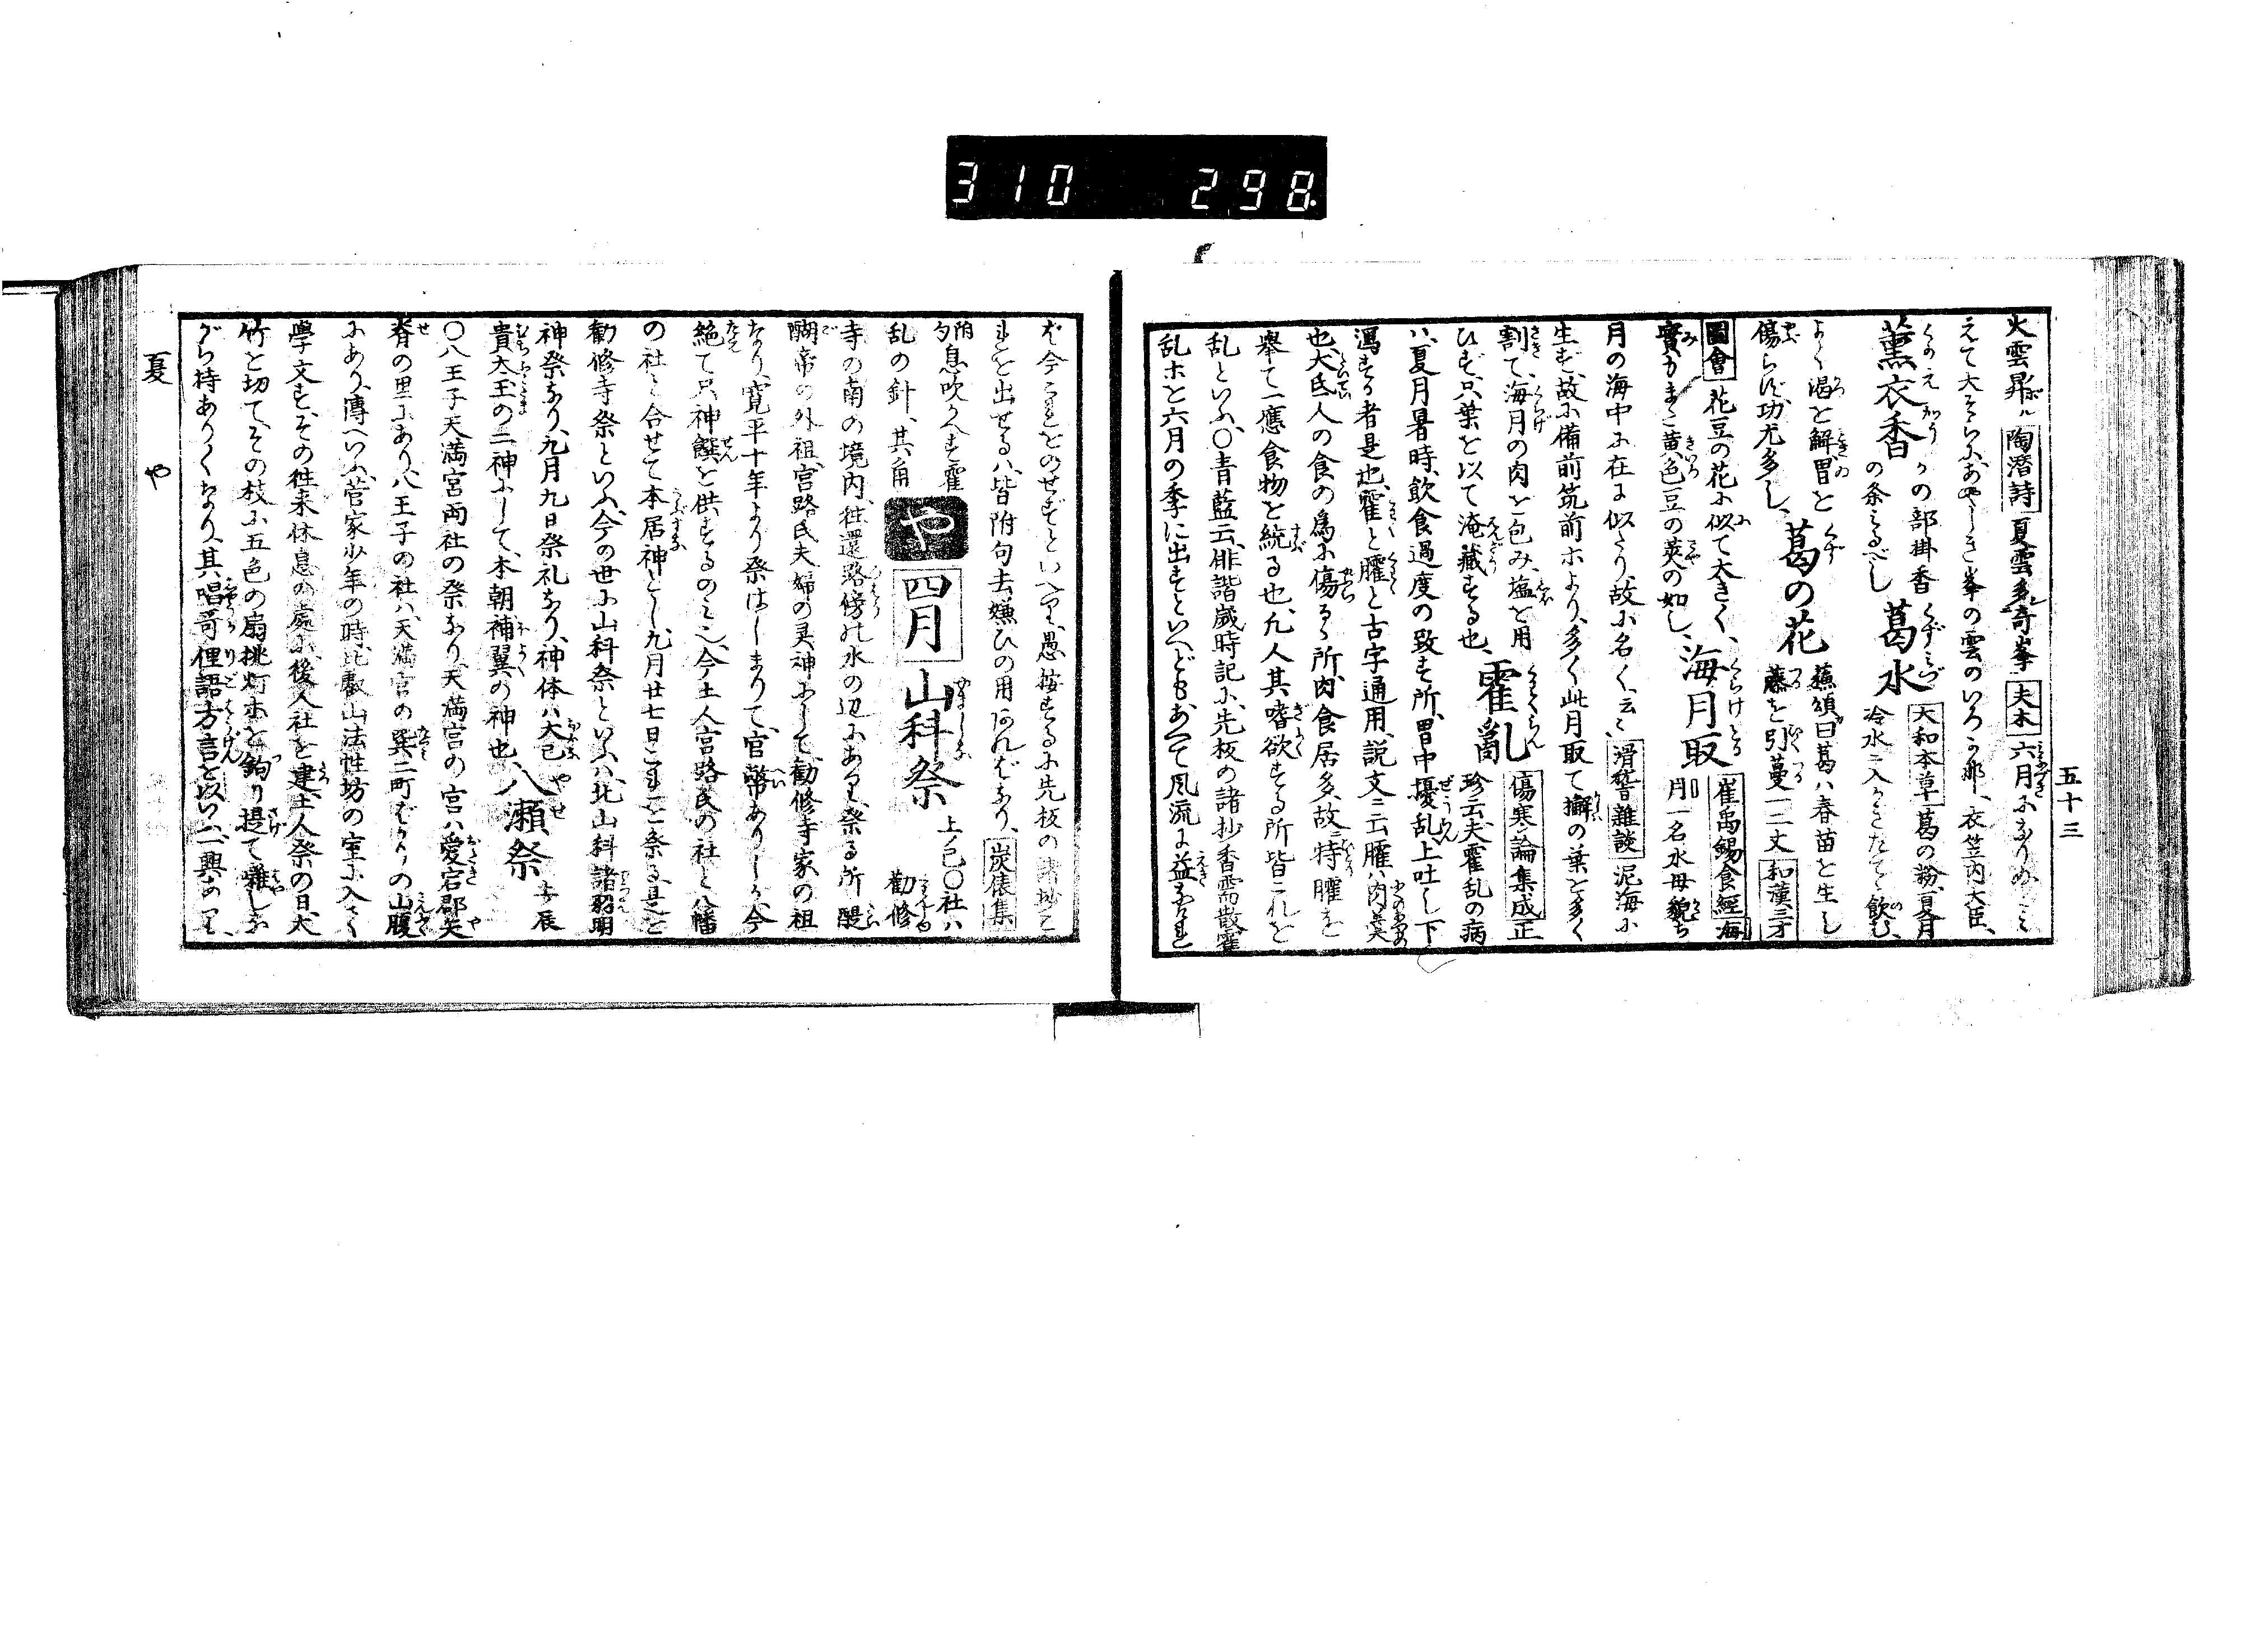 310 298
五十三
火雲昇ル 陶潜詩 夏雲多奇峯 夫木 六月になりぬと見
えて大そらにあやしき峯の雲のいろかな、衣笠内大臣、
薫衣香 かの部掛香の条にみるべし 葛水 大和本草 葛の粉、夏月冷水ニ入かきたてゝ飲む、
よく渇を解胃を傷らず、功尤多し、 葛の花 蘓頌曰葛ハ春苗を生し藤を引蔓一二丈 和漢三才
圖會 花豆の花に似て大きく、實もまた黄色豆の莢の如し、 海月取 崔禹錫食經 海月一名水母貌ち
月の海中に在に似たり、故に名く、云云、 滑稽雜談 泥海に
生ず、故に備前筑前ホより、多く此月取て檞の葉を多く
割て、海月の肉を包み、塩を用ひず、只葉を以て淹藏する也、 霍亂 傷寒論集成 正珍云、夫霍乱の病
ハ、夏月暑時、飲食過度の致す所、胃中擾乱上吐し下
瀉する者是也、霍と臛と古字通用、説文ニ云臛ハ肉羮
也、大氐人の食の為に傷るゝ所、肉食居多、故ニ特臛を
舉て一應食物を統る也、凢人其嗜欲する所皆これを
乱といふ、〇青藍云、俳諧歳時記に、先板の諸抄香需散霍
乱ホを六月の季に出すといへども、あへて風流に益なければ
ば今これをのせずといへり、愚按するに先板の諸抄に
これを出せるハ、皆附句去嫌ひの用なればなり、 炭俵集
附句 息吹かへす霍乱の針、其角 や 四月 山科祭 上ノ巳〇社ハ勧修
寺の南の境内、往還路傍の水の辺にあり、祭る所醍
醐帝の外祖、宮路氏夫婦の灵神にして、勧修寺家の祖
なり、寛平十年より祭はしまりて、官幣ありしか、今
絶て只神饌を供するのミ也、今土人宮路氏の社と八幡
の社と合せて本居神とし、九月廿七日これを祭る、是を
勧修寺祭といふ、今の世に山科祭といふハ、北山科諸羽明
神祭なり、九月九日祭礼なり、神体ハ大己貴大玉の二神にして、本朝補翼の神也、 八瀬祭 上ノ辰
〇八王子天満宮両社の祭なり、天満宮の宮ハ愛宕郡矢
脊の里にあり、八王子の社ハ、天満宮の巽二町ばかりの山腹
にあり、傳へいふ、菅家少年の時、比叡山法性坊の室に入て
學文す、その往来休息の處に、後人社を建、土人祭の日、大
竹を切てその枝に五色の扇挑灯ホを鉤り提て囃しな
がら持ありくなり、其唱哥俚語方言を以いふ、一興あり、
夏 や